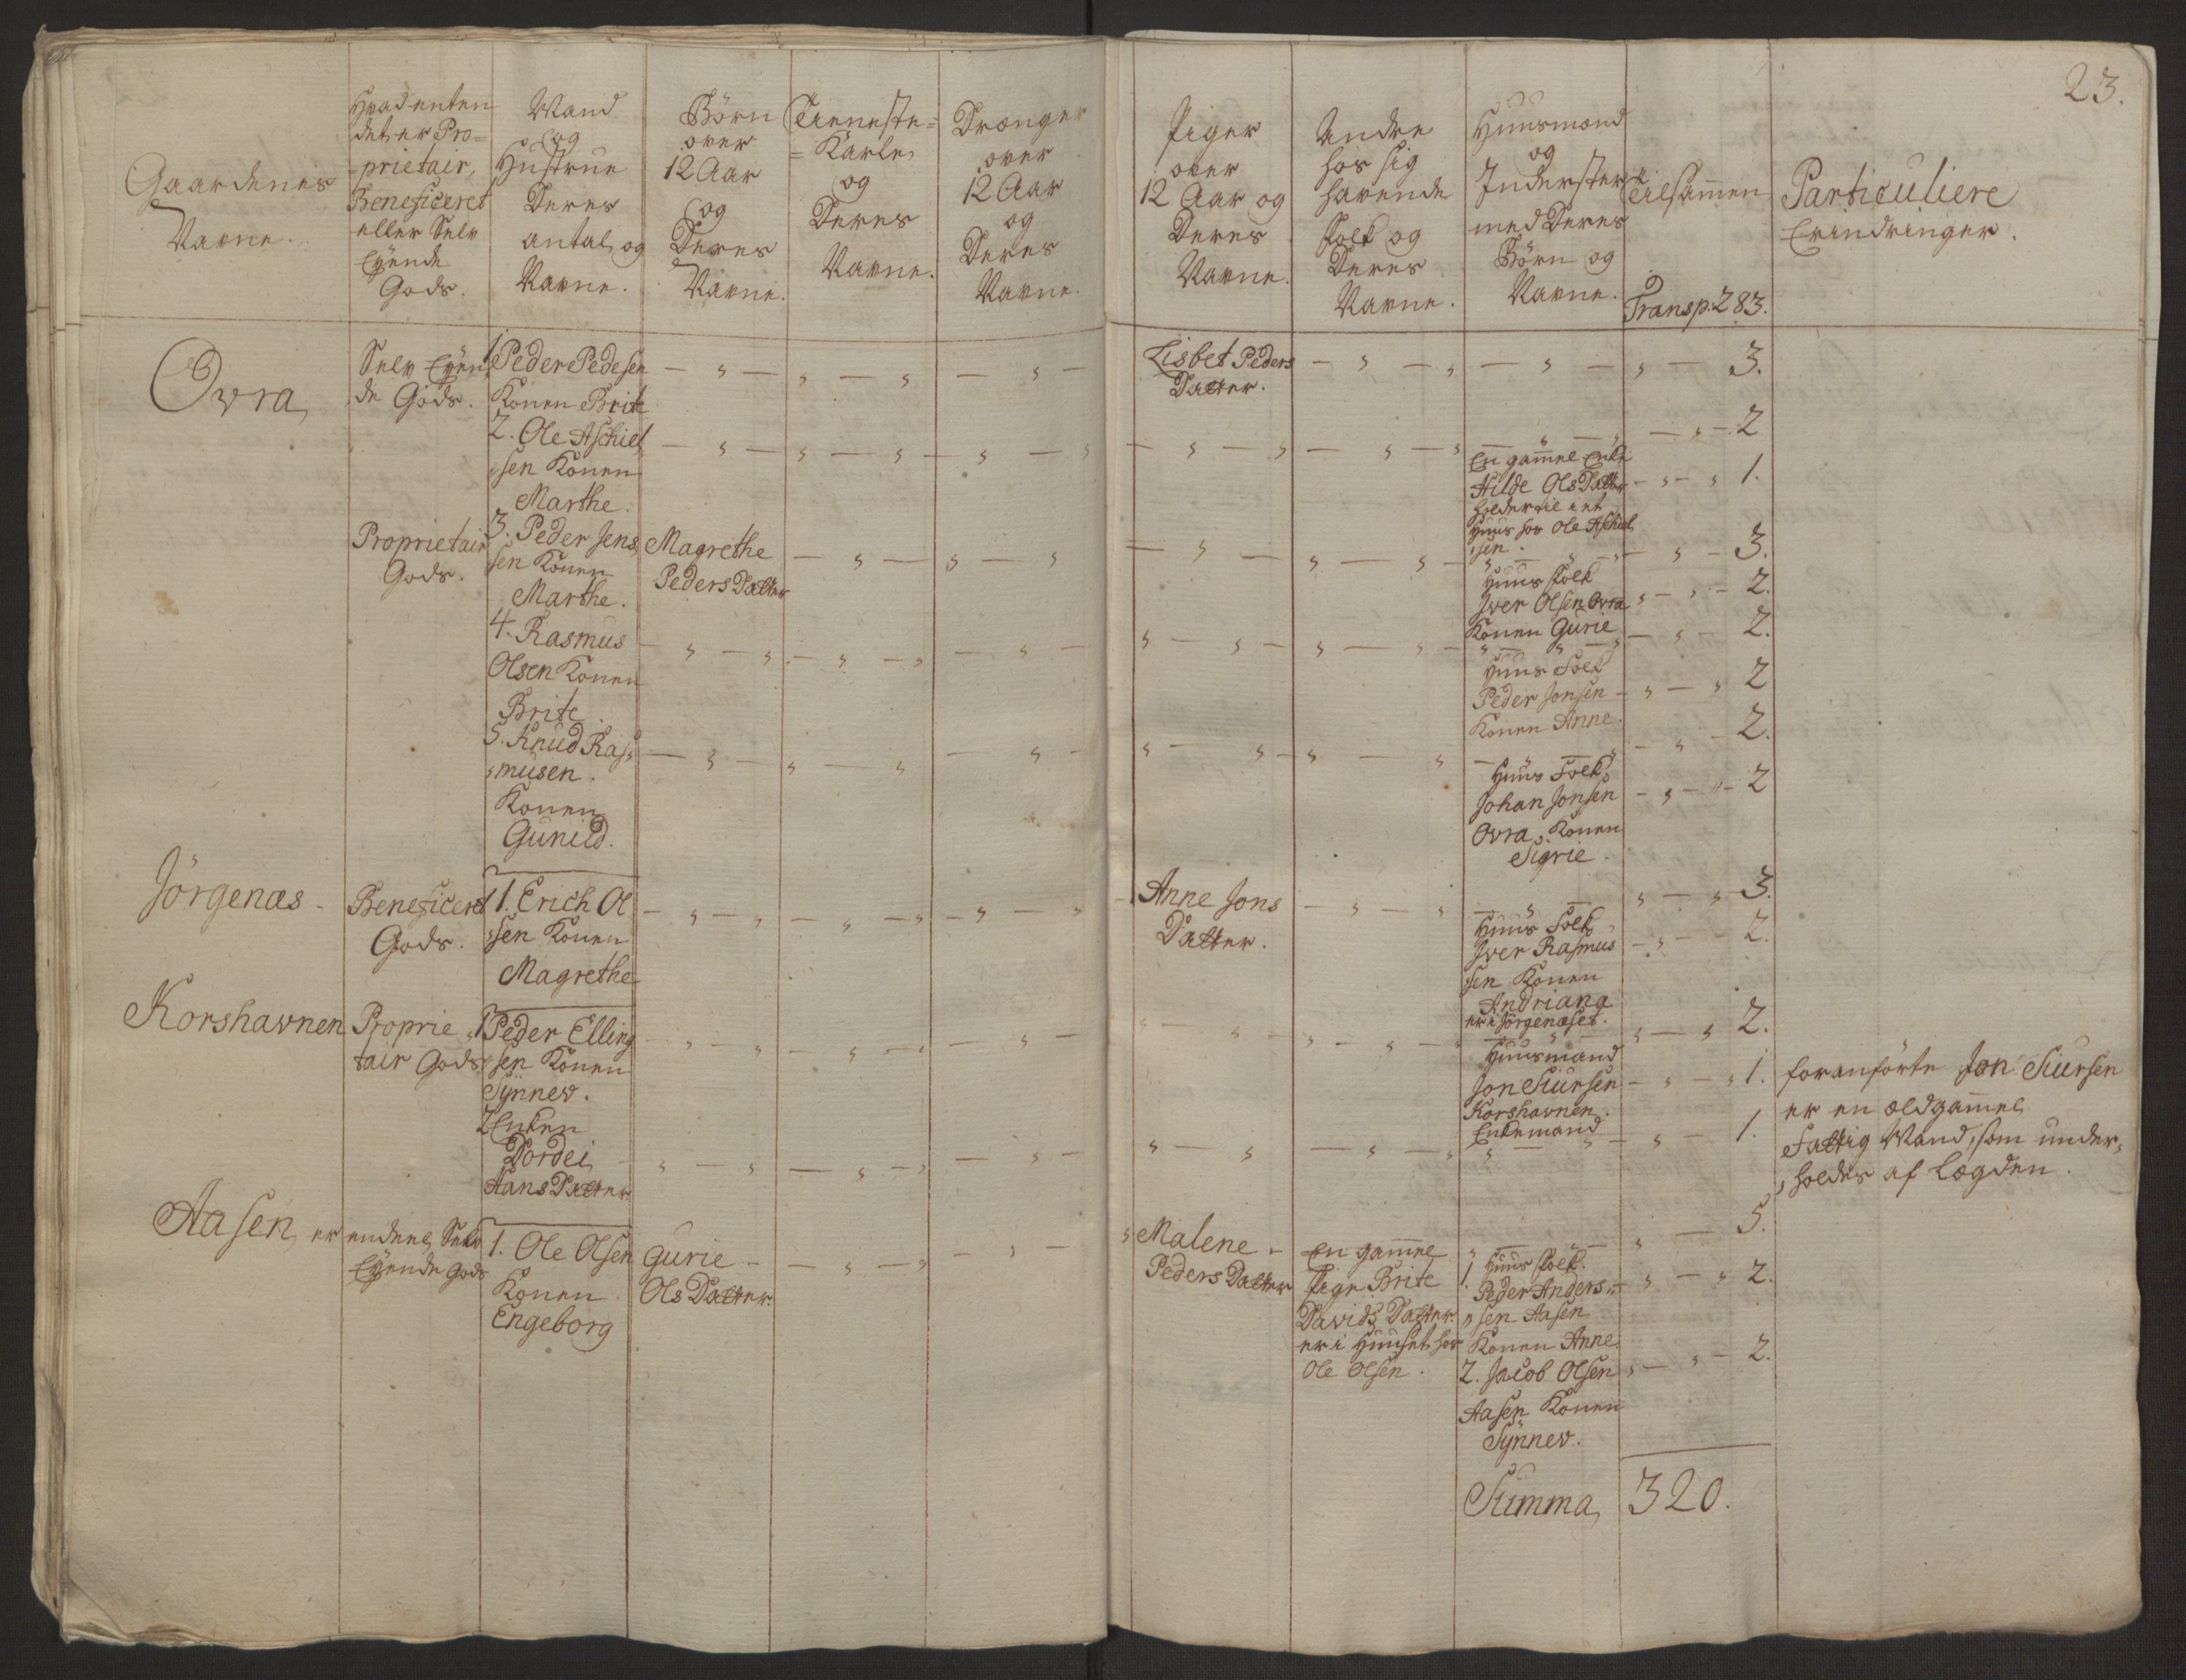 23.
Gaardenes
Navne.
Hvad enten
det er Pro=
=prietair,
Beneficeret
eller Selv
Eÿende
Gods.
Mand
og
Hustrue
Deres
antal og
Navne.
Börn
over
12 Aar
og
Deres
Navne.
Tieneste=
=Karle
og
Deres
Navne.
Drænger
over
12 Aar
og
Deres
Navne.
Piger
over
12 Aar og
Deres
Navne.
Andre
hos sig
havende
Folk og
Deres
Navne.
Huusmænd
og
Inderster
med Deres
Börn og
Navne.
Tilsam̄en
Transp. 283.
Particuliere
Erindringer.
Ovra
Selv Eÿen
de Gods.
1. Peder Pedesen
Konen Brite
Lisbet Peders
Datter.
3.
2. Ole Aschiel
sen Konen
Marthe.
2
En gam̄el Enke
Hilde Ols Datter
holder til i et
Huus hos Ole Aschiel
sen.
1.
Proprietair
Gods.
3. Peder Jens
sen Konen
Marthe.
Magrethe
Peders Datter
3.
Huus Folk
Iver Olsen Ovra
Konen Gurie
2.
4. Rasmus
Olsen Konen
Brite
2.
Huus Folk
Peder Jonsen
Konen Anne.
2
5. Knud Ras
musen.
Konen
Gunild.
2.
Huus Folk
Johan Jonsen
Ovra, Konen
Sigrie.
2
Jörgenæs
Beneficeret
Gods.
1. Erich Ol
sen Konen
Magrethe
Anne Jons
Datter.
3.
Huus Folk
Iver Rasmus
sen Konen
Andriana
er i Jörgenæset.
2.
Korshavnen
Proprie
tair Gods
1 Peder Elling
sen Konen
Sÿnnev.
2.
Huusmand
Jon Siursen
Korshavnen.
Enkemand
1.
foranförte Jon Siursen
er en ældgam̄el
Fattig Mand, som under,
, holdes af Lægden.
2 Enken
Dordei
Hans Datter
1.
Aasen er endeel Selv
Eÿende Gods
1. Ole Olsen
Konen
Engeborg
Gurie
Ols Datter.
Malene
Peders Datter
En gam̄el
Pige Brite
Davids Datter
er i Huuset hos
Ole Olsen.
5.
1. Huus Folk.
Peder Anders
sen Aasen
Konen Anne.
2.
2. Jacob Olsen
Aasen Konen
Sÿnnev.
2.
Summa 320.